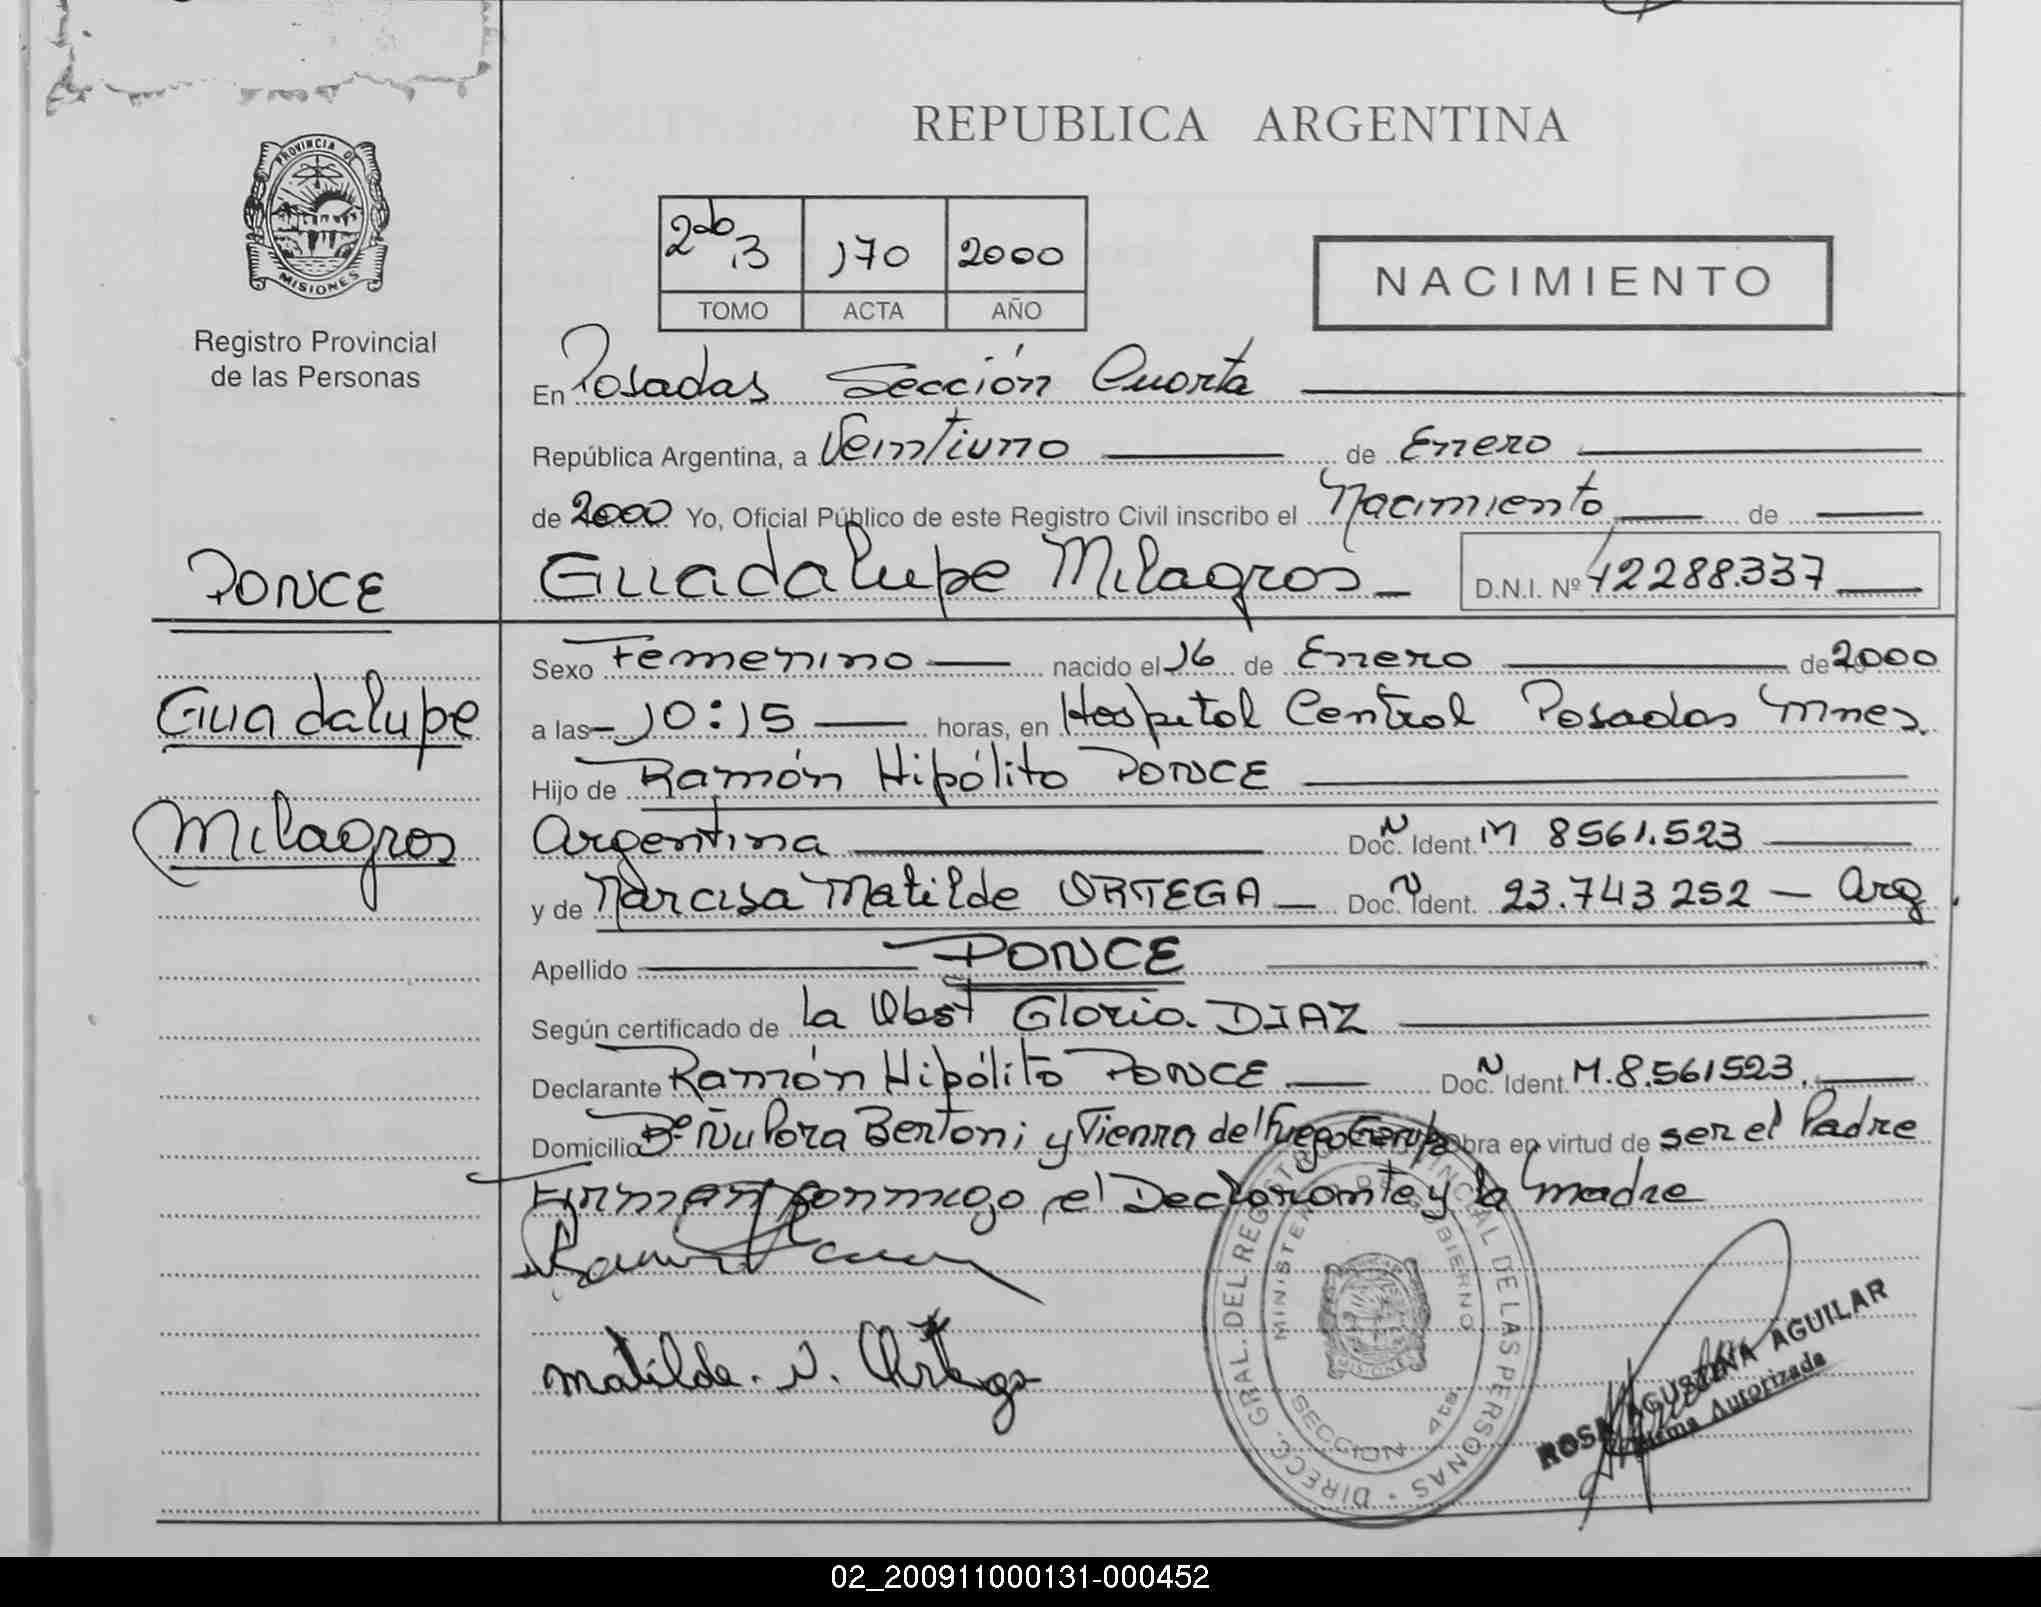 REPUBLICA ARGENTINA
PROVINCIA DE
MISIONES
Registro Provincial
de las Personas
170 2000
TOMO ACTA AÑO
NACIMIENTO
En Posadas Sección Cuarta
República Argentina, a Veintiuno de Enero
de 2000 Yo, Oficial Público de este Registro Civil inscribo el Nacimiento de
PONCE
Guadalupe Milagros D.N.I. Nº 42288.337
Sexo Femenino nacido el 16 de Enero de 2000
Guadalupe
a las 10:15 horas, en Hospital Central Posadas Mnes.
Hijo de Ramón Hipólito PONCE
Milagros
Argentina Doc. N Ident. M 8561.523
y de Narcisa Matilde ORTEGA Doc. N Ident. 23.743 252 - Arg.
Apellido PONCE
Según certificado de la Obst Gloria DIAZ
Declarante Ramón Hipólito PONCE Doc. N Ident. M.8.561523.
Domicilio Bº Ñu Pora Bertoni y Tierra del Fuego Garup obra en virtud de ser el Padre
Firman conmigo el Declarante y la madre
Matilde. N. Ortega
DIRECC. GRAL. DEL REGISTRO PROVINCIAL DE LAS PERSONAS
MINISTERIO DE GOBIERNO
SECCION 4ta.
ROSA AGUSTINA AGUILAR
Firma Autorizada
02_200911000131-000452